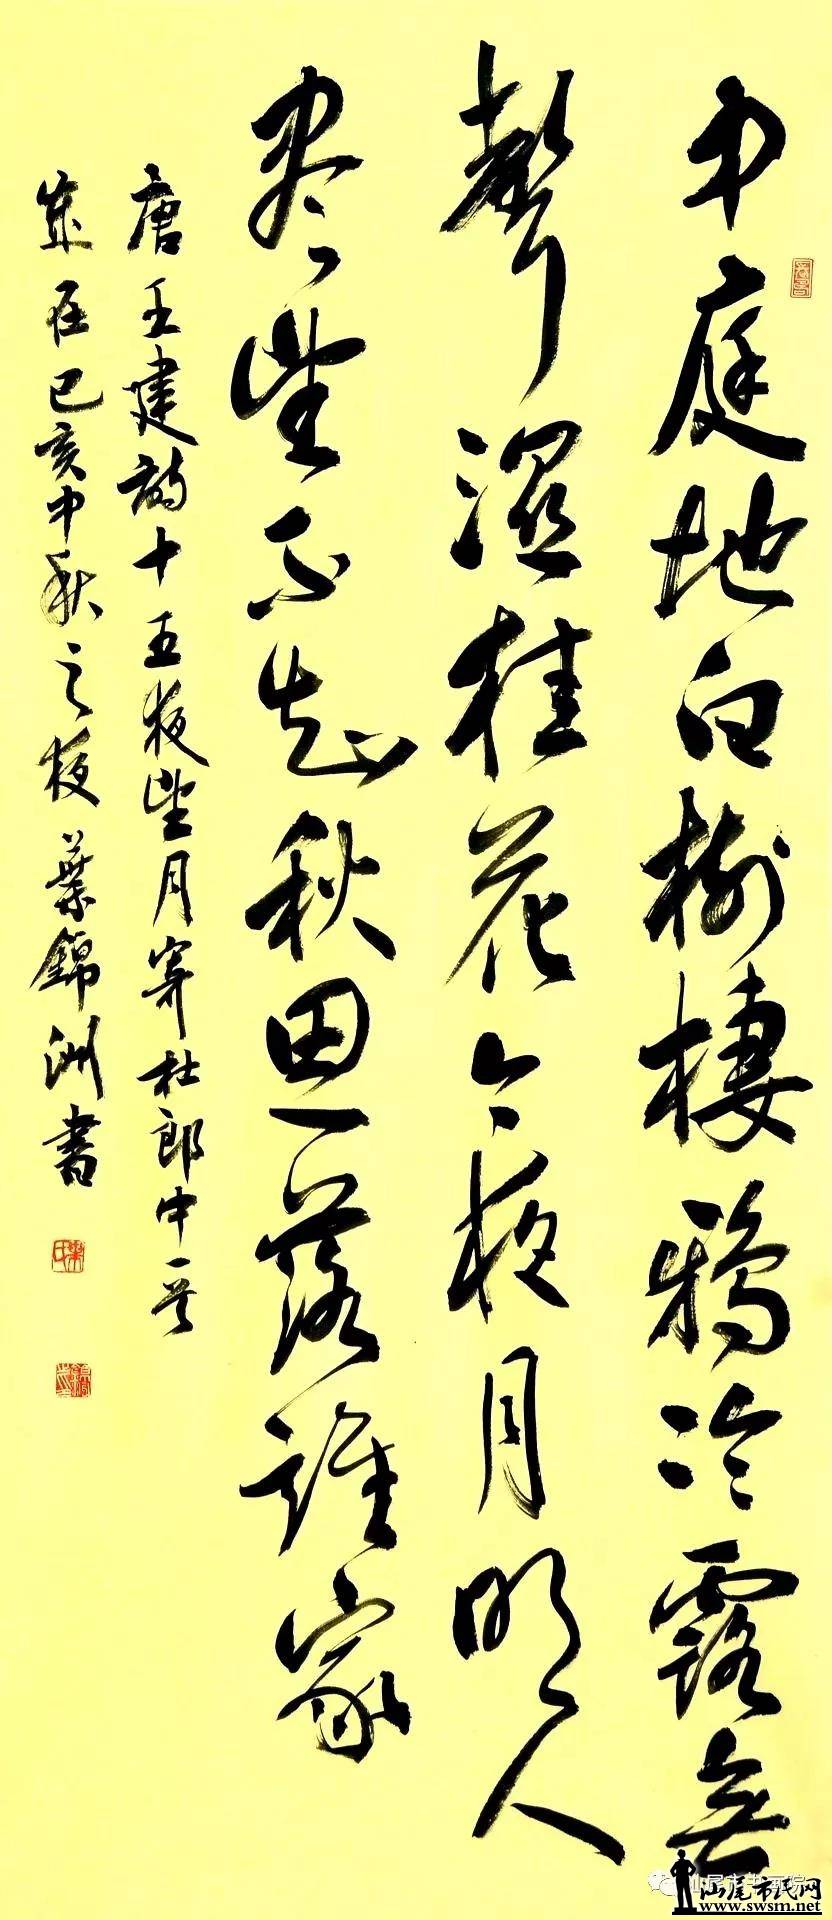 中庭地白樹棲鴉冷露無
聲濕桂花今夜月明人
盡望不知秋思落誰家
唐王建詩十五夜望月寄杜郎中一首
歲在己亥中秋之夜葉錦洲書
汕尾市民网
www.swsm.net